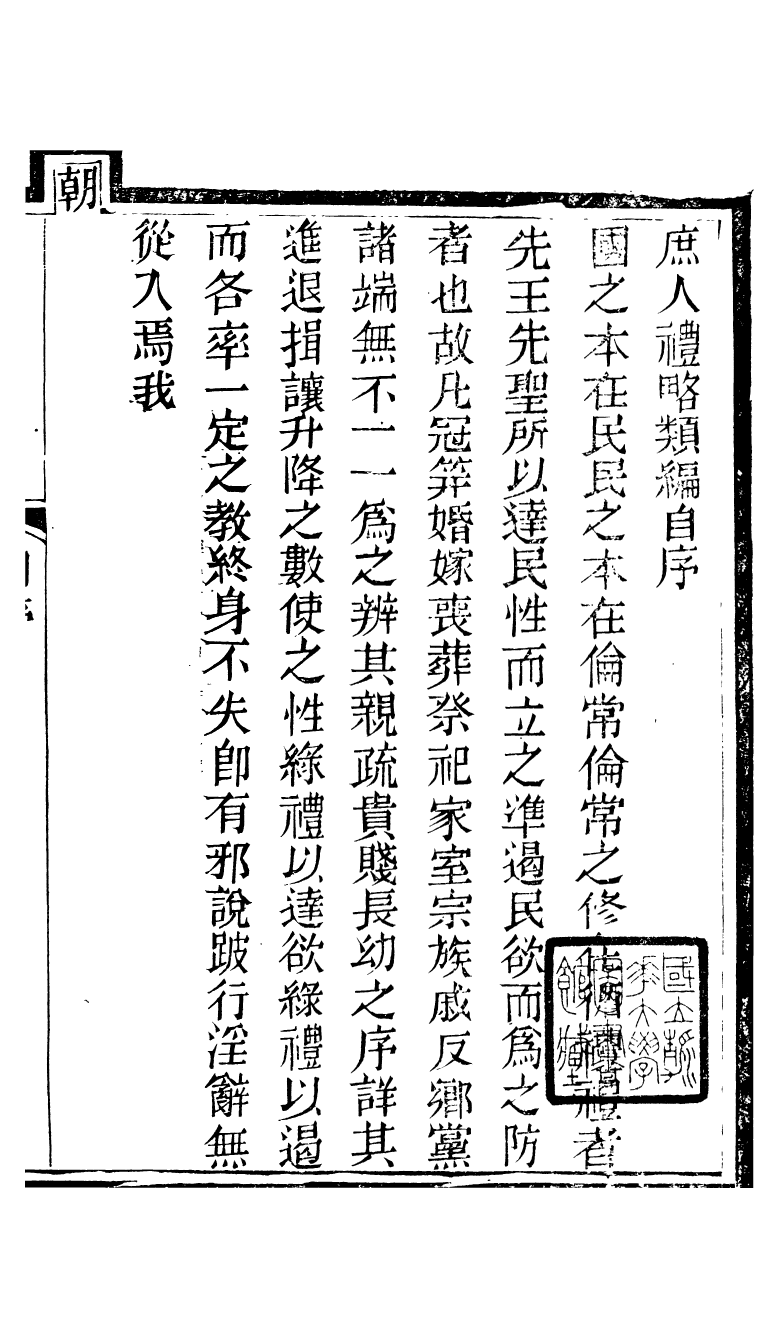 庶人禮略類編自序
國之本在民民之本在倫常倫常之修禮者
先王先聖所以達民性而立之準遏民欲而爲之防
者也故凡冠笄婚嫁喪葬祭祀家室宗族戚反鄉黨
諸端無不一一爲之辨其親疏貴賤長幼之序詳其
進退揖讓升降之數使之性緣禮以達欲緣禮以遏
而各率一定之教終身不失卽有邪說跛行淫辭無
從入焉我
朝
國立
華大學
館藏